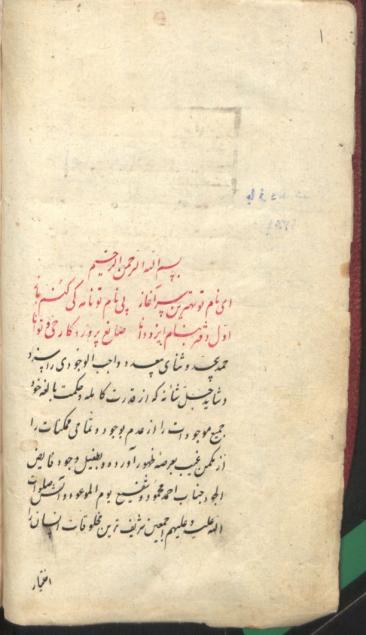 ۱
بسم الله الرحمن الرحیم
ای نام تو بهترین سر آغاز بی نام تو نامه کی کنم باز
اول دفتر بنام ایزد دانا صانع پروردکار حی و توانا
حمد بیحد و ثنای بیعد واجب الوجودی را سزد
و شاید جل شانه که از قدرت کامله و حکمت بالغه خود
جمیع موجودات را از عدم بوجود و تمامی ممکنات را
از مکمن غیب بعرصه ظهور آورده و بطفیل وجود فایض
الجود جناب احمد محمود و شفیع یوم الموعود و آلش صلوات
الله علیه و علیهم اجمعین شریف ترین مخلوقات انسان را
اختیار